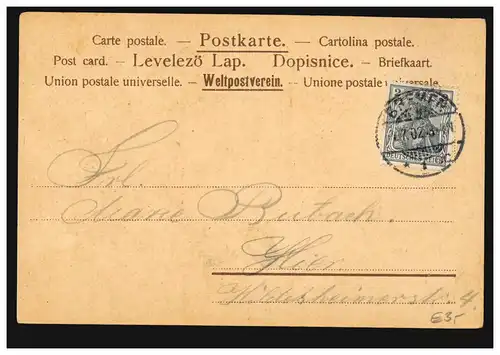 Carte postale. — Postkarte. — Cartolina postale.
Post card. — Levelező Lap. Dopisnice. — Briefkaart.
Union postale universelle. — Weltpostverein. — Unione postale universale.
BREMEN
Frl.
Marie
Hier
Hildesheimerstr. 4.
E3,-